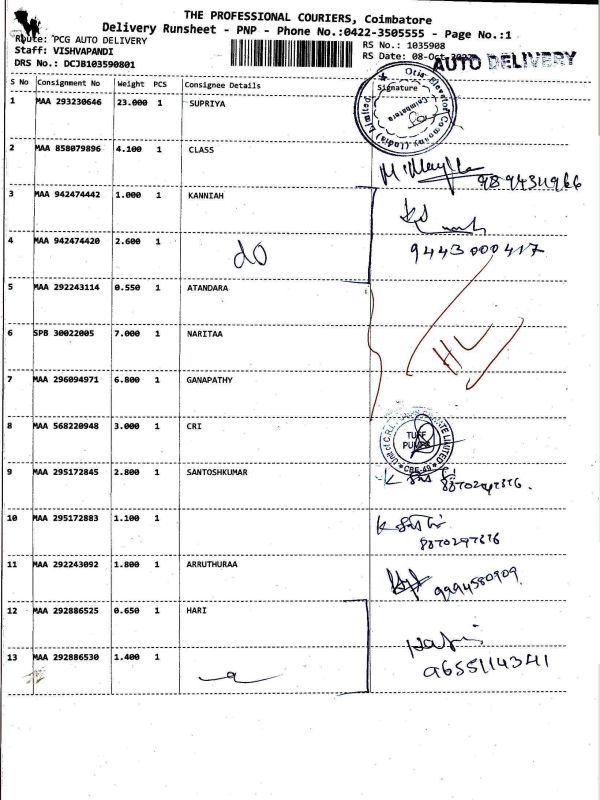 THE PROFESSIONAL COURIERS, Coimbatore
Delivery Runsheet - PNP - Phone No.:0422-3505555 - Page No.:1
Route: PCG AUTO DELIVERY
Staff: VISHVAPANDI
DRS No.: DCJB103590801
RS No.: 1035908
RS Date: 08-Oct
AUTO DELIVERY
S No Consignment No Weight PCS Consignee Details Signature
1 MAA 293230646 23.000 1 SUPRIYA
Otis Elevator Company (India) Limited
Coimbatore
2 MAA 858079896 4.100 1 CLASS
9894311966
3 MAA 942474442 1.000 1 KANNIAH
4 MAA 942474420 2.600 1 do
9443000417
5 MAA 292243114 0.550 1 ATANDARA
6 SPB 30022005 7.000 1 NARITAA
HL
7 MAA 296094971 6.800 1 GANAPATHY
8 MAA 568220948 3.000 1 CRI
TUFF
PUMPS
CBE-49
9 MAA 295172845 2.800 1 SANTOSHKUMAR
10 MAA 295172883 1.100 1
8870297876
11 MAA 292243092 1.800 1 ARRUTHURAA
9994580909
12 MAA 292886525 0.650 1 HARI
13 MAA 292886530 1.400 1
9655114341